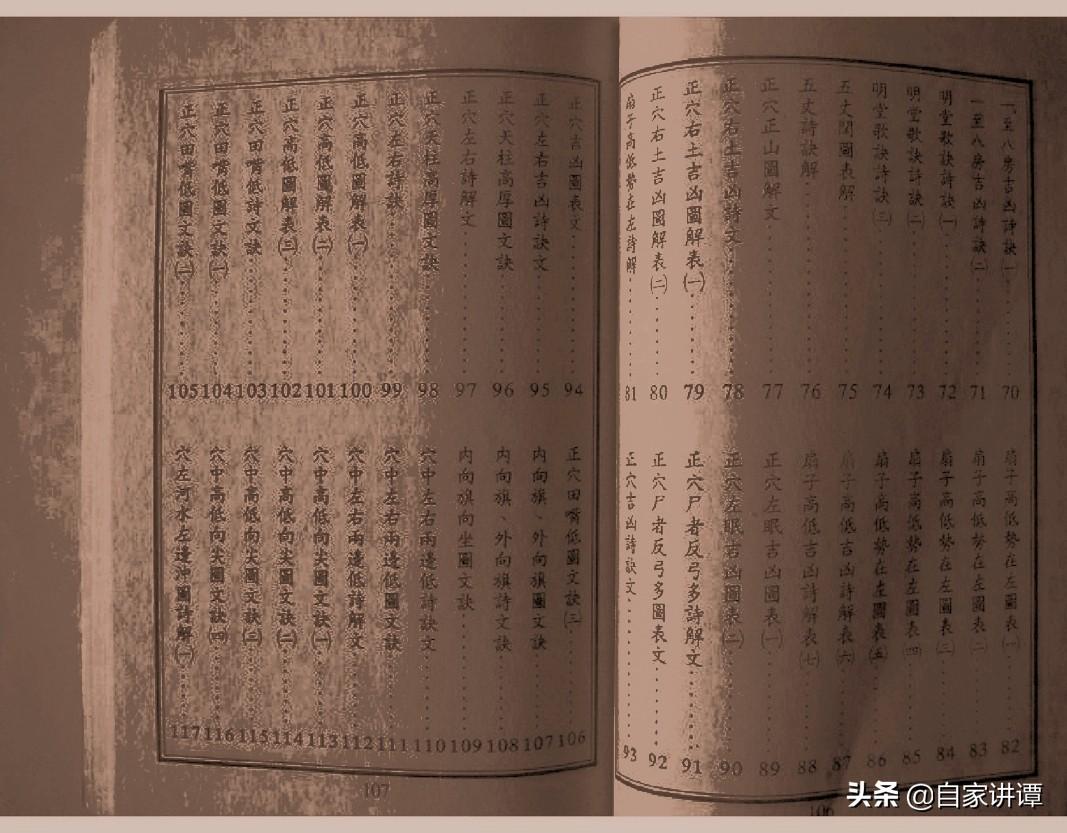 一至八房吉凶詩訣㈠ 70
一至八房吉凶詩訣㈡ 71
明堂歌訣詩訣㈠ 72
明堂歌訣詩訣㈡ 73
明堂歌訣詩訣㈢ 74
五丈闊圖表解 75
五丈詩訣解 76
正穴正山圖解文 77
正穴右土吉凶詩文 78
正穴右土吉凶圖解表㈠ 79
正穴右土吉凶圖解表㈡ 80
扇子高低勢在左詩解 81
扇子高低勢在左圖表㈠ 82
扇子高低勢在左圖表㈡ 83
扇子高低勢在左圖表㈢ 84
扇子高低勢在左圖表㈣ 85
扇子高低勢在左圖表㈤ 86
扇子高低吉凶詩解表㈥ 87
扇子高低吉凶詩解表㈦ 88
正穴左眠吉凶圖表㈠ 89
正穴左眠吉凶圖表㈡ 90
正穴尸者反弓多詩解文 91
正穴尸者反弓多圖表文 92
正穴吉凶詩訣文 93
106
正穴吉凶圖表文 94
正穴左右吉凶詩訣文 95
正穴天柱高厚圖文訣 96
正穴左右詩解文 97
正穴天柱高厚圖文訣 98
正穴左右詩訣 99
正穴高低圖解表㈠ 100
正穴高低圖解表㈡ 101
正穴高低圖解表㈢ 102
正穴田嘴低詩文訣 103
正穴田嘴低圖文訣㈠ 104
正穴田嘴低圖文訣㈡ 105
正穴田嘴低圖文訣㈢ 106
內向旗、外向旗圖文訣 107
內向旗、外向旗詩文訣 108
內向旗向坐圖文訣 109
穴中左右兩邊低詩訣文 110
穴中左右兩邊低圖文訣 111
穴中左右兩邊低詩解文 112
穴中高低向尖圖文訣㈠ 113
穴中高低向尖圖文訣㈡ 114
穴中高低向尖圖文訣㈢ 115
穴中高低向尖圖文訣㈣ 116
穴左河水左邊沖圖詩解㈠ 117
107
头条 @自家讲谭